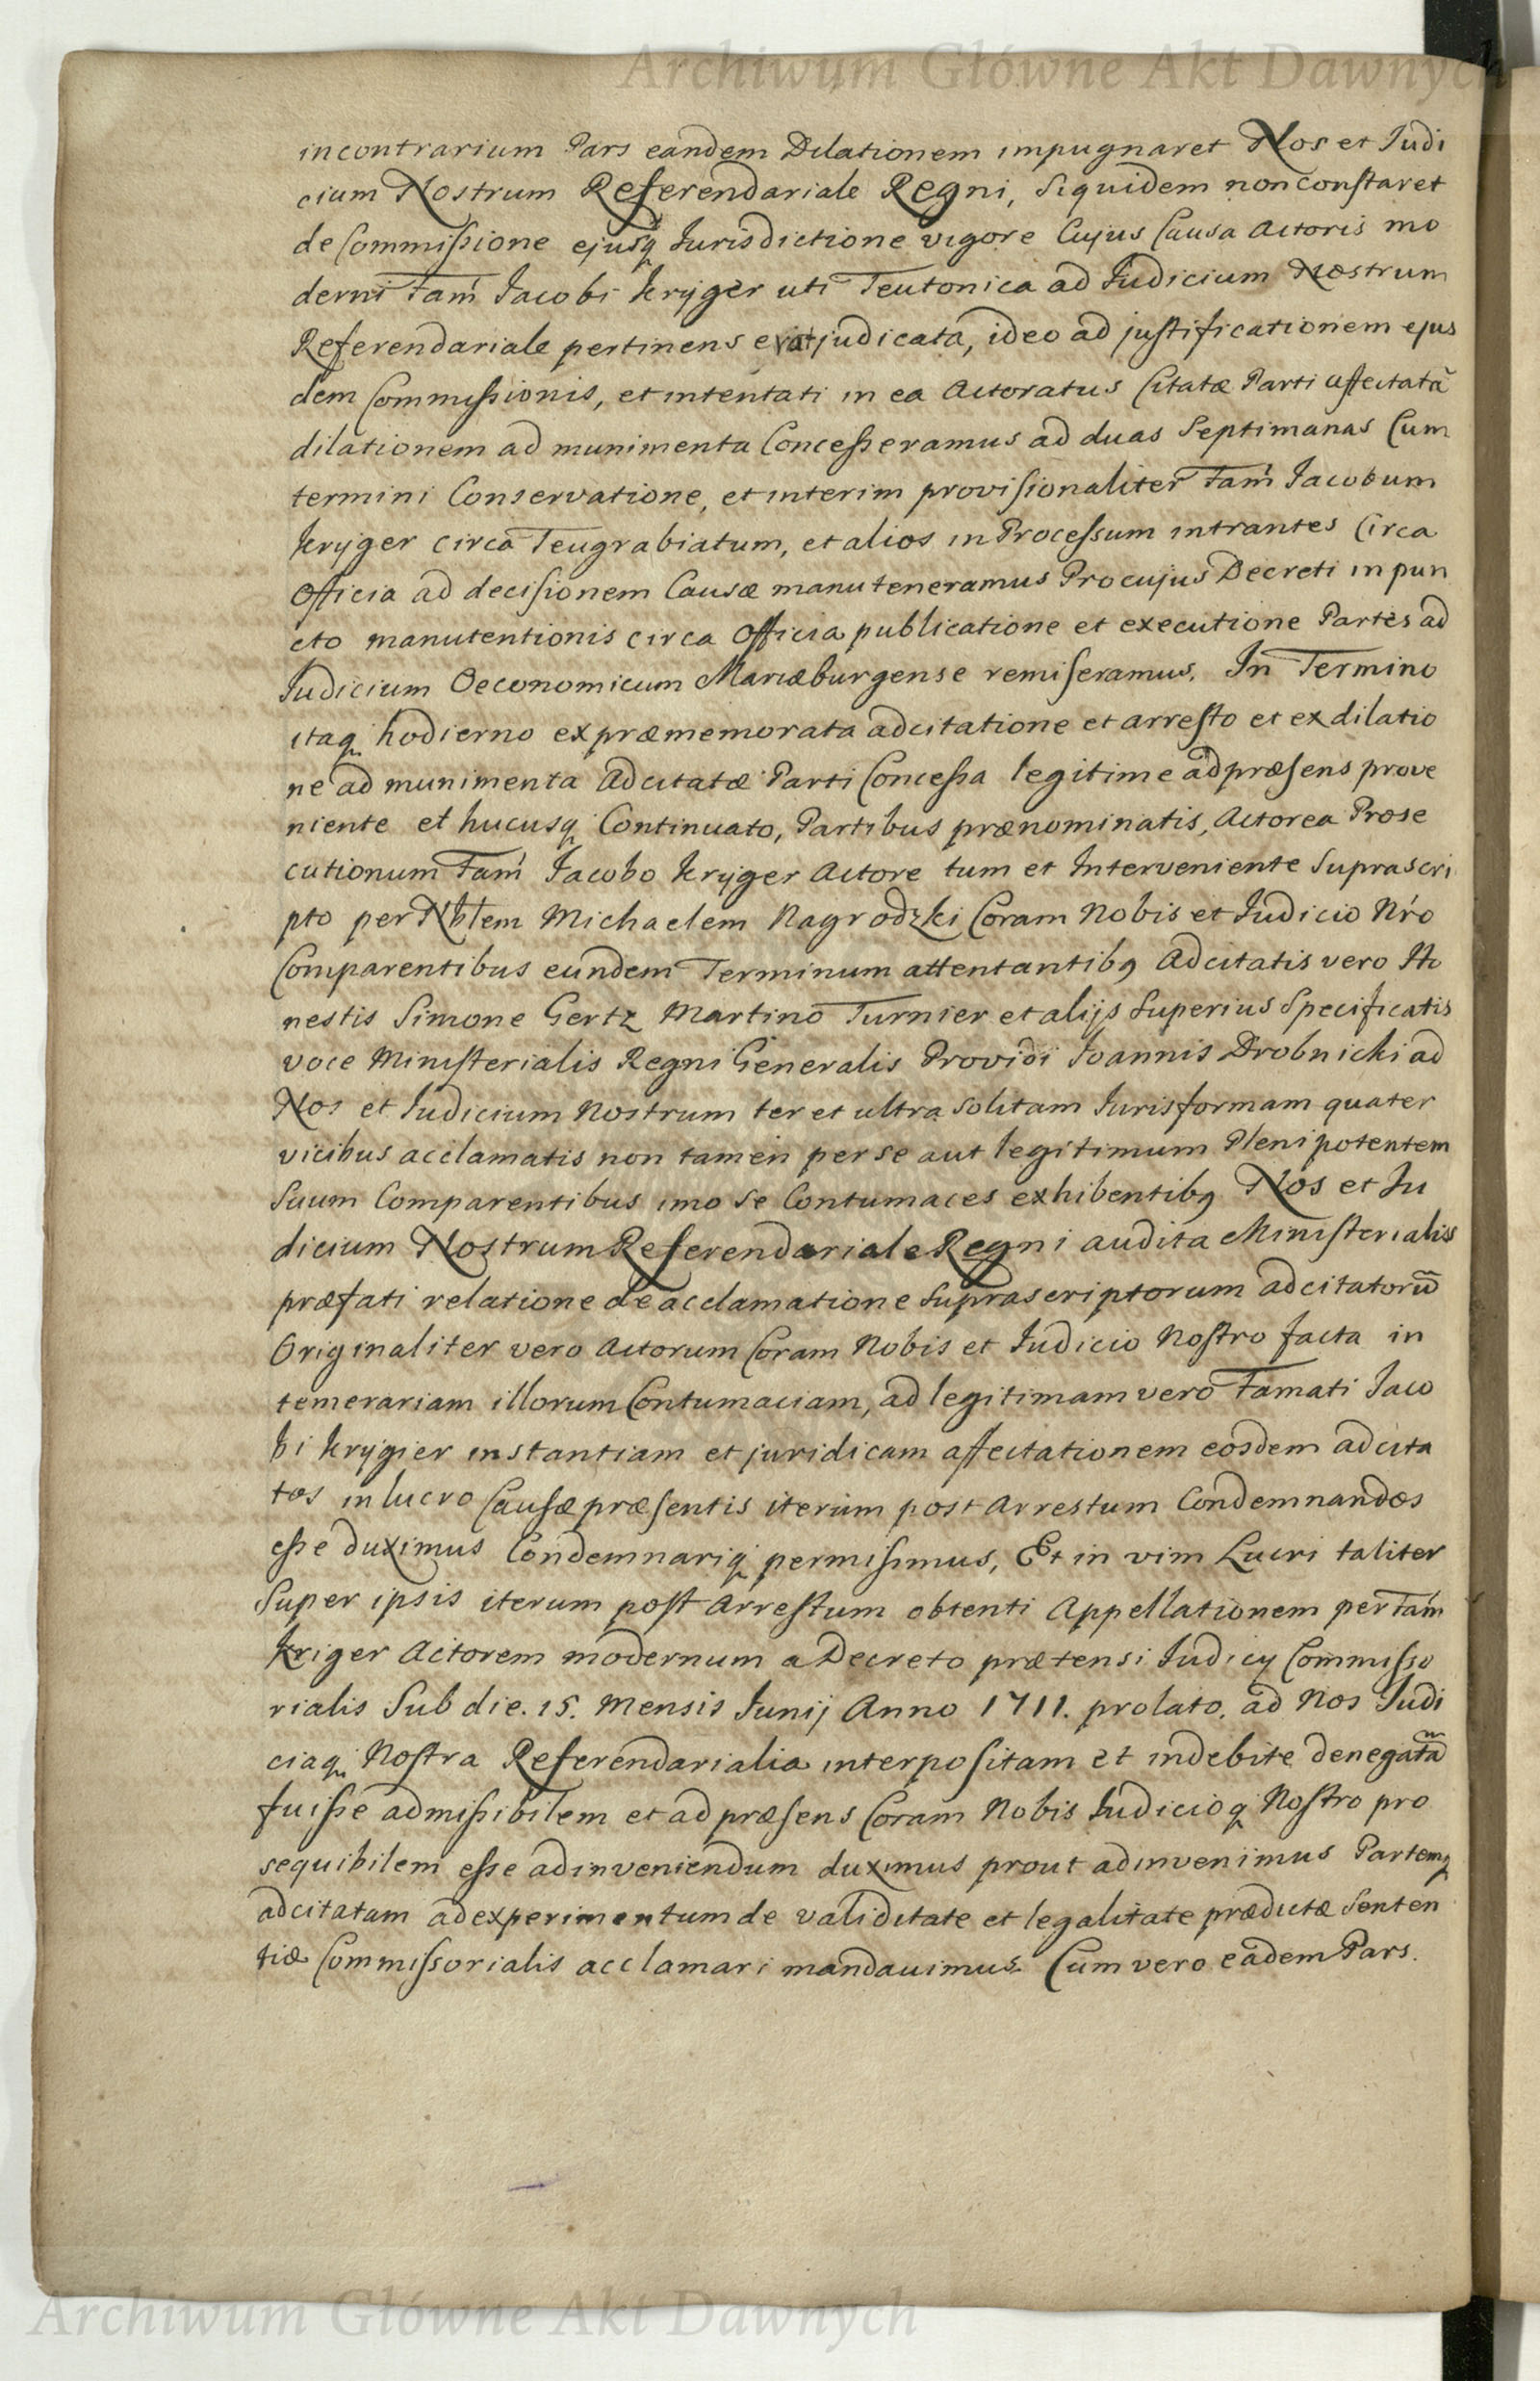 Archiwum Główne Akt Dawnych
in contrarium Pars eandem Dilationem impugnaret Nos et Judi
cium Nostrum Referendariale Regni, Siquidem non constaret
de Commissione ejusq Jurisdictione vigore Cujus Causa Actoris mo
derni Fam̃ Jacobi Kryger uti Teutonica ad Judicium Nostrum
Referendariale pertinens erat judicata, ideo ad justificationem ejus
dem Commissionis, et intentati in ea Actoratus Citatæ Parti affectatã
dilationem ad munimenta Concesseramus ad duas Septimanas Cum
termini Conservatione, et interim provisionaliter Fam̃ Jacobum
Kryger circa Teugrabiatum, et alios in Processum intrantes Circa
Officia ad decisionem Causæ manuteneramus Pro cujus Decreti in pun
cto manutentionis circa Officia publicatione et executione Partes ad
Judicium Oeconomicum Mariæburgense remiseramus. In Termino
itaq hodierno ex præmemorata adcitatione et arresto et ex dilatio
ne ad munimenta Adcitatæ Parti Concessa legitime ad præsens prove
niente et hucusq Continuato, Partibus prænominatis, Actorea Prose
cutionum Fam̃ Jacobo Kryger Actore tum et Interveniente Suprascri
pto per Nbłem Michaelem Nagrodzki Coram Nobis et Judicio Nr̃o
Comparentibus eundem Terminum attentantibꝰ Adcitatis vero Ho
nestis Simone Gertz Martino Turnier et alijs Superius Specificatis
voce Ministerialis Regni Generalis Providi Joannis Drobnicki ad
Nos et Judicium Nostrum ter et ultra solitam Juris formam quater
vicibus acclamatis non tamen per se aut legitimum Plenipotentem
Suum Comparentibus imo se Contumaces exhibentibꝰ Nos et Ju
dicium Nostrum Referendariale Regni audita Ministerialis
præfati relatione de acclamatione Suprascriptorum adcitatorũ
Originaliter vero Actorum Coram Nobis et Judicio Nostro facta in
temerariam illorum Contumaciam, ad legitimam vero Famati Jaco
bi Krygier instantiam et juridicam affectationem eosdem adcita
tos in lucro Causæ præsentis iterum post Arrestum Condemnandos
esse duximus Condemnariq permisimus, Et in vim Lucri taliter
Super ipsis iterum post Arrestum obtenti Appellationem per Fam̃
Kriger Actorem modernum a Decreto prætensi Judicij Commisso
rialis Sub die. 15. Mensis Junij Anno 1711. prolato, ad Nos Judi
ciaq Nostra Referendarialia interpositam et indebite denegatã
fuisse admissibilem et ad præsens Coram Nobis Judicioq Nostro pro
sequibilem esse adinveniendum duximus prout adinvenimus Partemq
adcitatam ad experimentum de validitate et legalitate prædictæ Senten
tiæ Commissorialis acclamari mandavimus. Cum vero eadem Pars.
Archiwum Główne Akt Dawnych